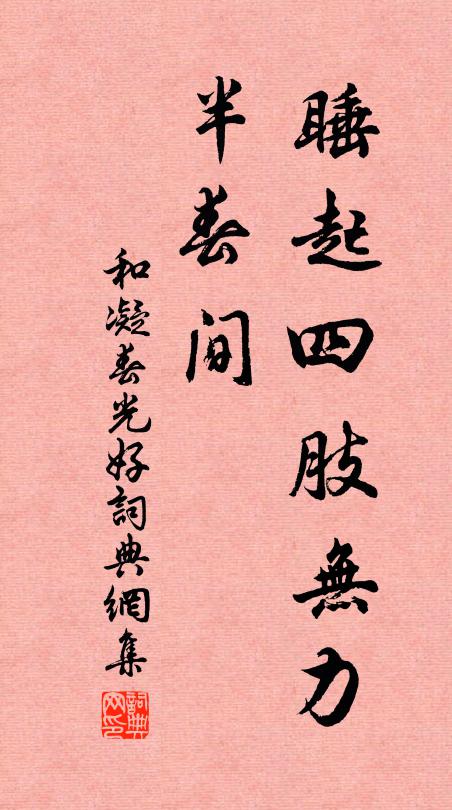 睡起四肢無力
半春間
和凝春光好詞典網集
詞典网印